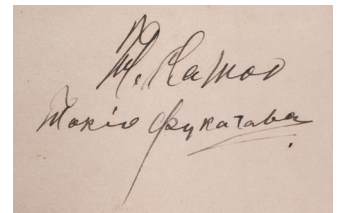 Н. Катоо
Токіо Фукагава